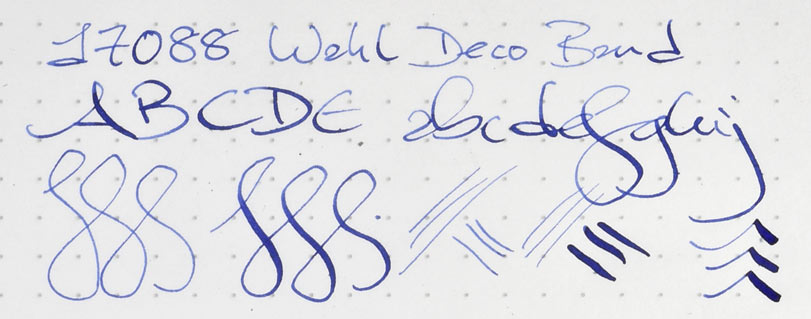 17088 Wahl Deco Band
ABCDE abcdefghij